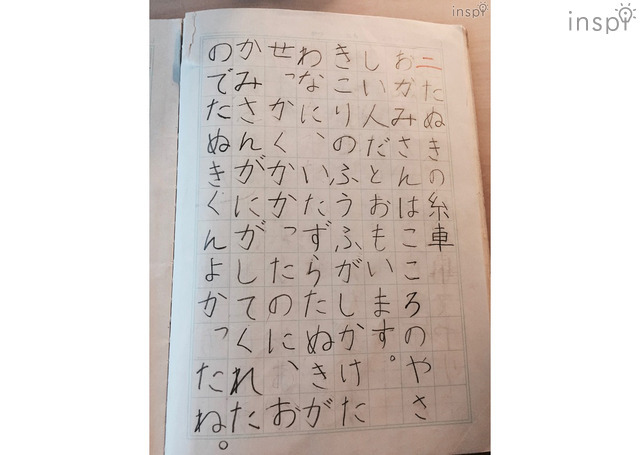 二たぬきの糸車
おがみさんはこころのやさ
しい人だとおもいます。
きこりのふうふがしかけた
わなに、いたずらたぬきが
せっかくかかったのに、お
かみさんがにがしてくれた
のでたぬきくんよかったね。
inspi
inspi